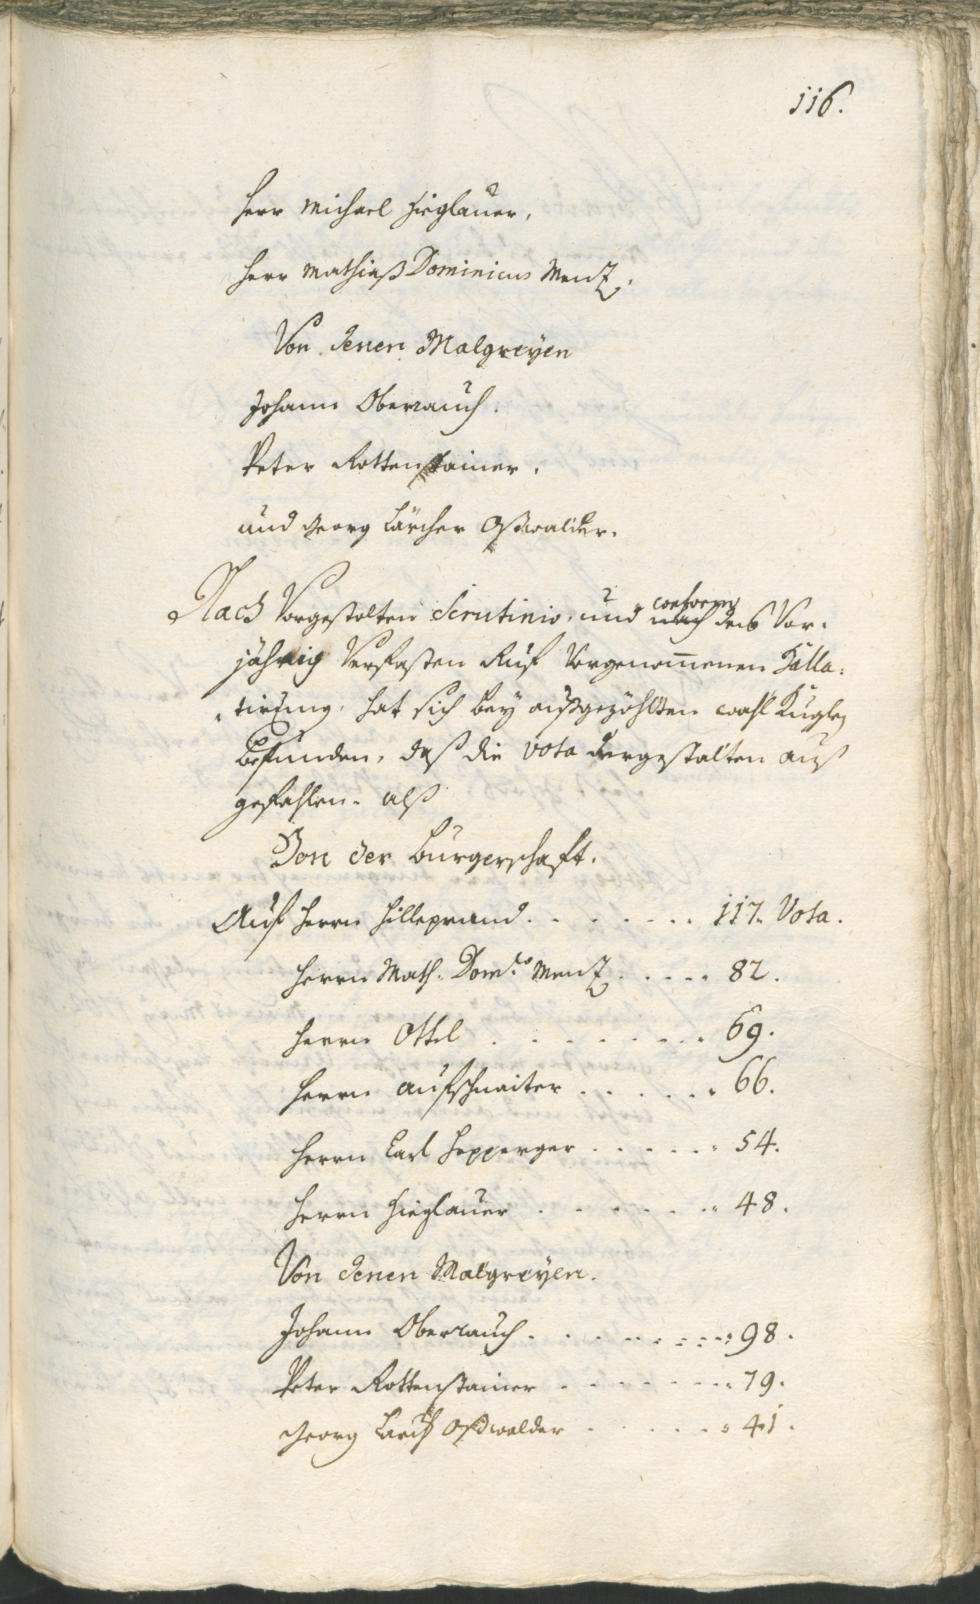 116.
Herr Michael Hieglauer.
Herr Mathiaß Dominicus Menz.
Von denen Malgreyen
Johann Oberrauch.
Peter Rottenstainer.
und Georg Lärcher Oßwalder.
Nach Vorgestolten Scrutinio, und conform des Vor-
jährig Verfasten Ruf Vorgenommenen Balla-
tirung, hat sich bey außgezöhlten wahl Kuglen
befunden, daß die vota dergestalten auß
gefahlen. alß
Von der Burgerschaft.
Auf Herrn Hilleprand. . . . . . . 117. Vota.
Herrn Math. Dom.co Menz. . . . . 82.
Herrn Ottel . . . . . . . 69.
Herrn Aufschnaiter . . . . . 66.
Herrn Carl Hepperger . . . . . 54.
Herrn Hieglauer . . . . . . 48.
Von denen Malgreyen.
Johann Oberrauch. . . . . . . . 98.
Peter Rottenstainer . . . . . . 79.
Georg Larch Oßwalder . . . . . 41.